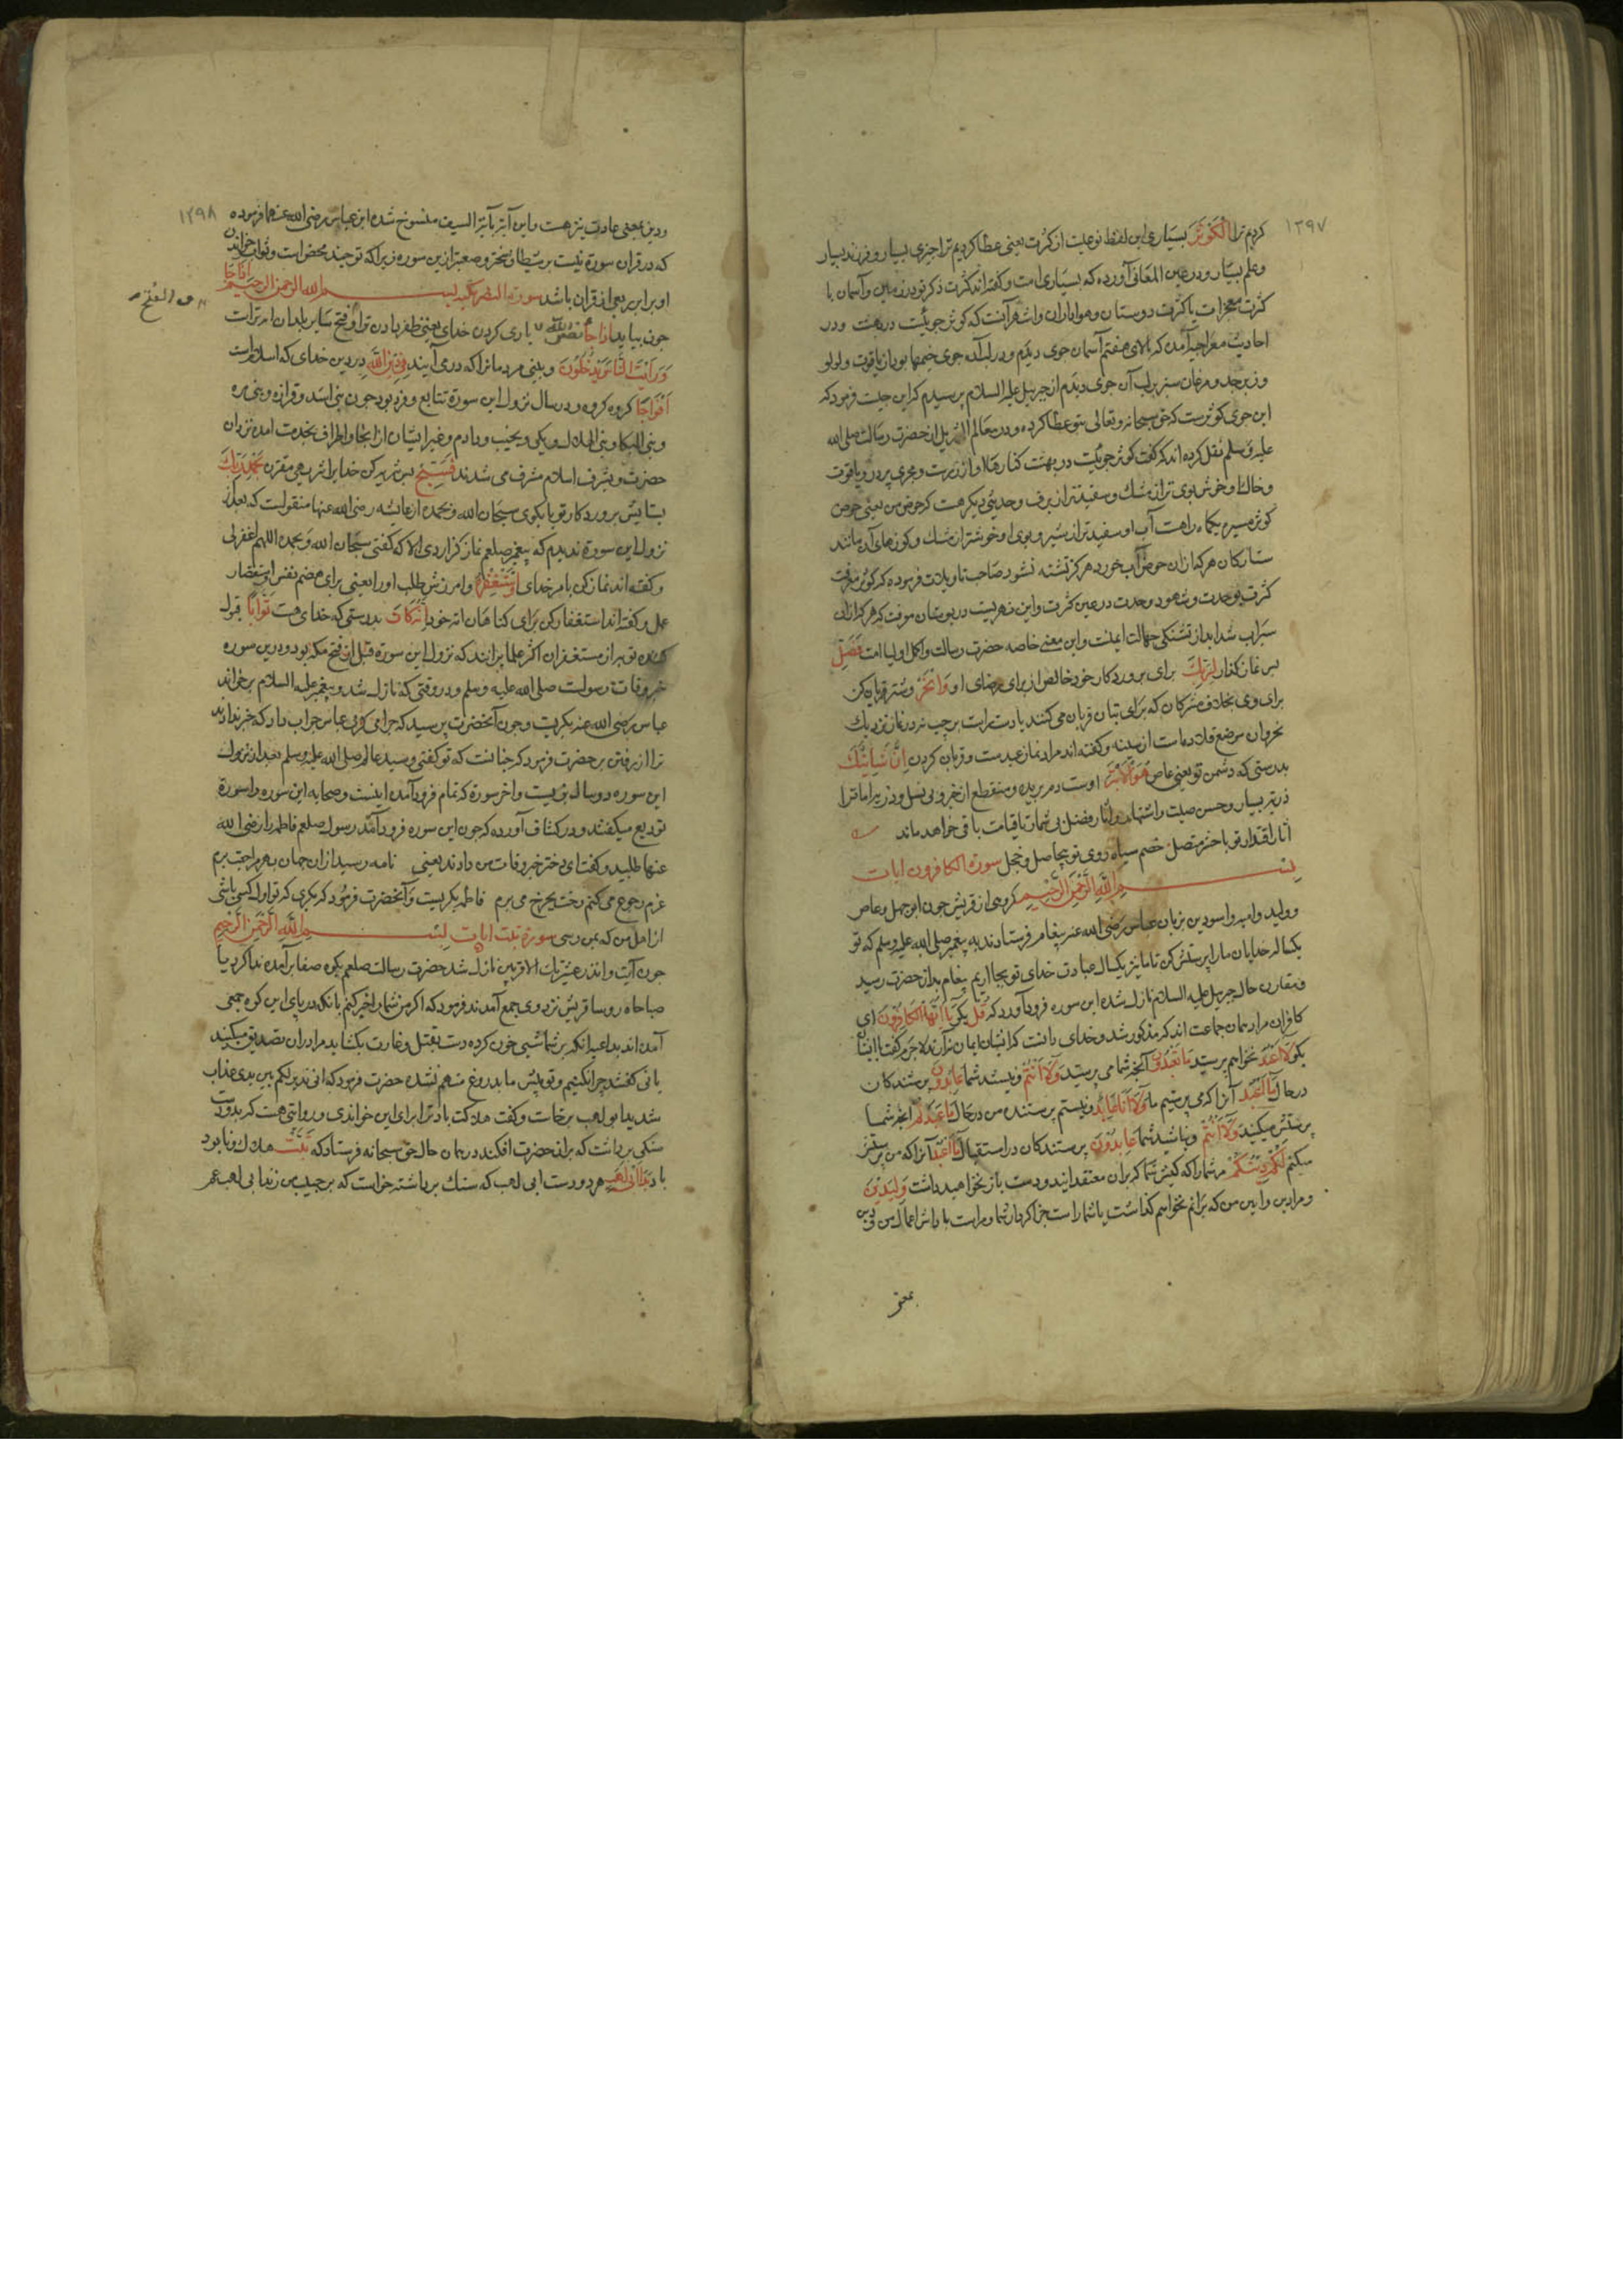 ۱۳۹۷
کردیم ترا الْكَوْثَرَ بسیاری این لفظ نوعلیت از کثرت یعنی عطا کردیم ترا چیزی بسیار و فرزند بسیار
و علم بسیار و در عین المعانی آورده که بسیاری امت و کفته اند کثرت ذکر تو در زمین و آسمان یا
کثرت معجزات یا کثرت دوستان و هواداران و اشهر آنست که کوثر جوییست در بهشت و در
احادیث معراجیه آمده که بالای هفتم آسمان جوی دیدم و در لب آن جوی خیمها بود از یاقوت و لولو
و زبرجد و مرغان سبز بر لب آن جوی دیدم از جبرییل علیه السلام پرسیدم که این چیست فرمود که
این جوی کوثرست که حق سبحانه و تعالی بتو عطا کرده و در معالم التنزیل از حضرت رسالت صلی الله
علیه و سلم نقل کرده اند که کفت کوثر جوییست در بهشت کنارهاء او از زرست و مجری بر در و یاقوت
و خاك او خوش بوی تر از مشك و سفیدتر از برف و حدیثی دیکر هست که حوض من یعنی حوض
کوثر مسیره یکماه راهست آب او سفید تر از شیر و بوی او خوشتر از مشك و کوزهای آن مانند
ستارکان هر که ازان حوض آب خورد هرکز تشنه نشود صاحب تاویلات فرموده که کوثر معرفت
کثرت بوحدت و شهود وحدت در عین کثرت و این نهریست در بوستان معرفت که هر که ازان
سیراب شد ابد از تشنکی جهالت ایمنست و این معنی خاصه حضرت رسالت و اکمل اولیا امت فَصَلِّ
پس نماز کذار لِرَبِّكَ برای پروردکار خود خالص از برای رضای او وَانْحَرْ و شتر قربان کن
برای وی بخلاف مشرکان که برای بتان قربان می کنند یا دست راست بر چپ نه در نماز نزدیك
نحر و آن موضع قلاده است از سینه و کفته اند مراد نماز عیدست و قربان کردن إِنَّ شَانِئَكَ
بدرستی که دشمن تو یعنی عاص هُوَ الْأَبْتَرُ اوست دم بریده و منقطع از خیر و بی نسل و ذریه اما ترا
ذریه بسیار و حسن صیت و اشتهار و اثار فضل بی شمار تا قیامت باقی خواهد ماند
اثار اقتدار تو با حشر متصل خصم سیاه روی تو بیحاصل و خجل سورة الکافرون ایات
بسم الله الرحمن الرحیم کروهی از قریش چون ابو جهل و عاص
و ولید و امیه و اسود بن بزبان عباس رضی الله عنه پیغام فرستادند به پیغمبر صلی الله علیه و سلم که تو
یکسال خدایان ما را پرستش کن تا ما نیز یکسال عبادت خدای تو بجا اریم پیغام بدان حضرت رسید
و مقارن حال جبرییل علیه السلام نازل شده این سوره فرود آورد که قُلْ بکو يَا أَيُّهَا الْكَافِرُونَ ای
کافران مراد همان جماعت اند که مذکور شد و خدای دانست که ایشان ایمان نیارند لاجرم کفت با ایشان
بکو لَا أَعْبُدُ نخواهم پرستید مَا تَعْبُدُونَ آنچه شما می پرستید وَلَا أَنْتُمْ و نیستید شما عَابِدُونَ پرستندکان
در حال مَا أَعْبُدُ آنرا که می پرستیم ما وَلَا أَنَا عَابِدٌ و نیستم پرستنده من در حال مَا عَبَدْتُمْ آنچه شما
پرستش میکنید وَلَا أَنْتُمْ و نباشید شما عَابِدُونَ پرستندکان در استقبال مَا أَعْبُدُ آنرا که من پرستش
میکنم لَكُمْ دِينُكُمْ مر شما را که کیش شما که بران معتقد ایند و دست باز نخواهید داشت وَلِيَ دِينِ
و مراد دین و آیین من که برانم نخواهم کذاشت یا شما راست جزا کردار شما و مراست پاداش اعمال من
۱۳۹۸
و دین بمعنی عادت نیز هست و این آیة بآیة السیف منسوخ شده ابن عباس رضی الله عنهما فرموده
که در قران سورة نیست بر شیطان سختر و صعبتر ازین سوره زیرا که توحید محض است و ثواب خواندن
او برابر ربعی از قران باشد سورة النصر بسم الله الرحمن الرحیم إِذَا جَاءَ
چون بیاید نَصْرُ اللَّهِ یاری کردن خدای یعنی ظفر دادن ترا وَالْفَتْحُ و فتح سایر بلدان امر تراست
وَرَأَيْتَ النَّاسَ يَدْخُلُونَ و بینی مردمانرا که درمی آیند فِي دِينِ اللَّهِ در دین خدای که اسلام است
أَفْوَاجًا کروه کروه و در سال نزول این سورة تتابع وفود بود چون بنی اسد و فزاره و بنی مره
و بنی البکا و بنی الهلال و غیر ایشان از انحا و اطراف بخدمت آمده نزد آن
حضرت و بشرف اسلام مشرف می شدند فَسَبِّحْ پس تنزیه کن خدا را مقترن بِحَمْدِ رَبِّكَ
بستایش پروردکار تو یا بکوی سبحان الله و بحمده از عایشه رضی الله عنها منقولست که بعد از
نزول این سورة ندیدم که پیغمبر صلعم نماز کزاردی الا که کفتی سبحان الله و بحمده اللهم اغفرلی
و کفته اند نماز کن بامر خدای وَاسْتَغْفِرْهُ و امرزش طلب او را یعنی برای هضم نفس و استقصار
عمل و کفته اند استغفار کن برای کناهان امت خود إِنَّهُ كَانَ بدرستی که خدای هست تَوَّابًا قبول
کننده توبه از مستغفران اکثر علما برانند که نزول این سورة قبل از فتح مکه بود و درین سوره
خبر وفات رسولست صلی الله علیه و سلم و در وقتی که نازل شد و پیغمبر علیه السلام برخواند
عباس رضی الله عنه بکریست و چون آنحضرت پرسید که چرا می کریی عباس جواب داد که خبر داده اند
ترا از رفتن پس حضرت فرمود که چنانست که تو کفتی و سید عالم صلی الله علیه و سلم بعد از نزول
این سوره دو سال بزیست و اخر سورة که تمام فرود آمده اینست و صحابه این سوره را سورة
تودیع میکفتند و در کشاف آورده که چون این سوره فرود آمد رسول صلعم فاطمه را رضی الله
عنها طلبید و کفت ای دختر خبر وفات من دادند یعنی نامه رسید ازان جهان بهر مراجعت برم
عزم رجوع می کنم رخت بچرخ می برم فاطمه بکریست و آنحضرت فرمود که مکری که تو اول کسی باشی
از اهل من که بمن رسی سورة تبت ایات بسم الله الرحمن الرحیم
چون آیت و انذر عشیرتك الاقربین نازل شد حضرت رسالت صلعم بکوه صفا برآمده ندا کرد یا
صباحاه روسا قریش نزد وی جمع آمدند فرمود که اکر من شما را خبر کنم بانکه در پای این کوه جمعی
آمده اند بداعیه انکه بر شما شبیخون کرده دست بقتل و غارت بکشاید مرا دران تصدیق میکنید
یا نی کفتند چرا نکنیم و تو پیش ما بدروغ متهم نشده حضرت فرمود که انی نذیر لکم بین یدی عذاب
شدید ابو لهب برخاست و کفت هلاکت باد ترا برای این خواندی و روایتی هست که بدو دست
سنکی برداشت که بران حضرت افکند در همان حال حق سبحانه فرستاد که تَبَّتْ هلاك و نابود
باد يَدَا أَبِي لَهَبٍ هر دو دست ابی لهب که سنك برداشته خواست که بر حبیب من زند ابی لهب عم